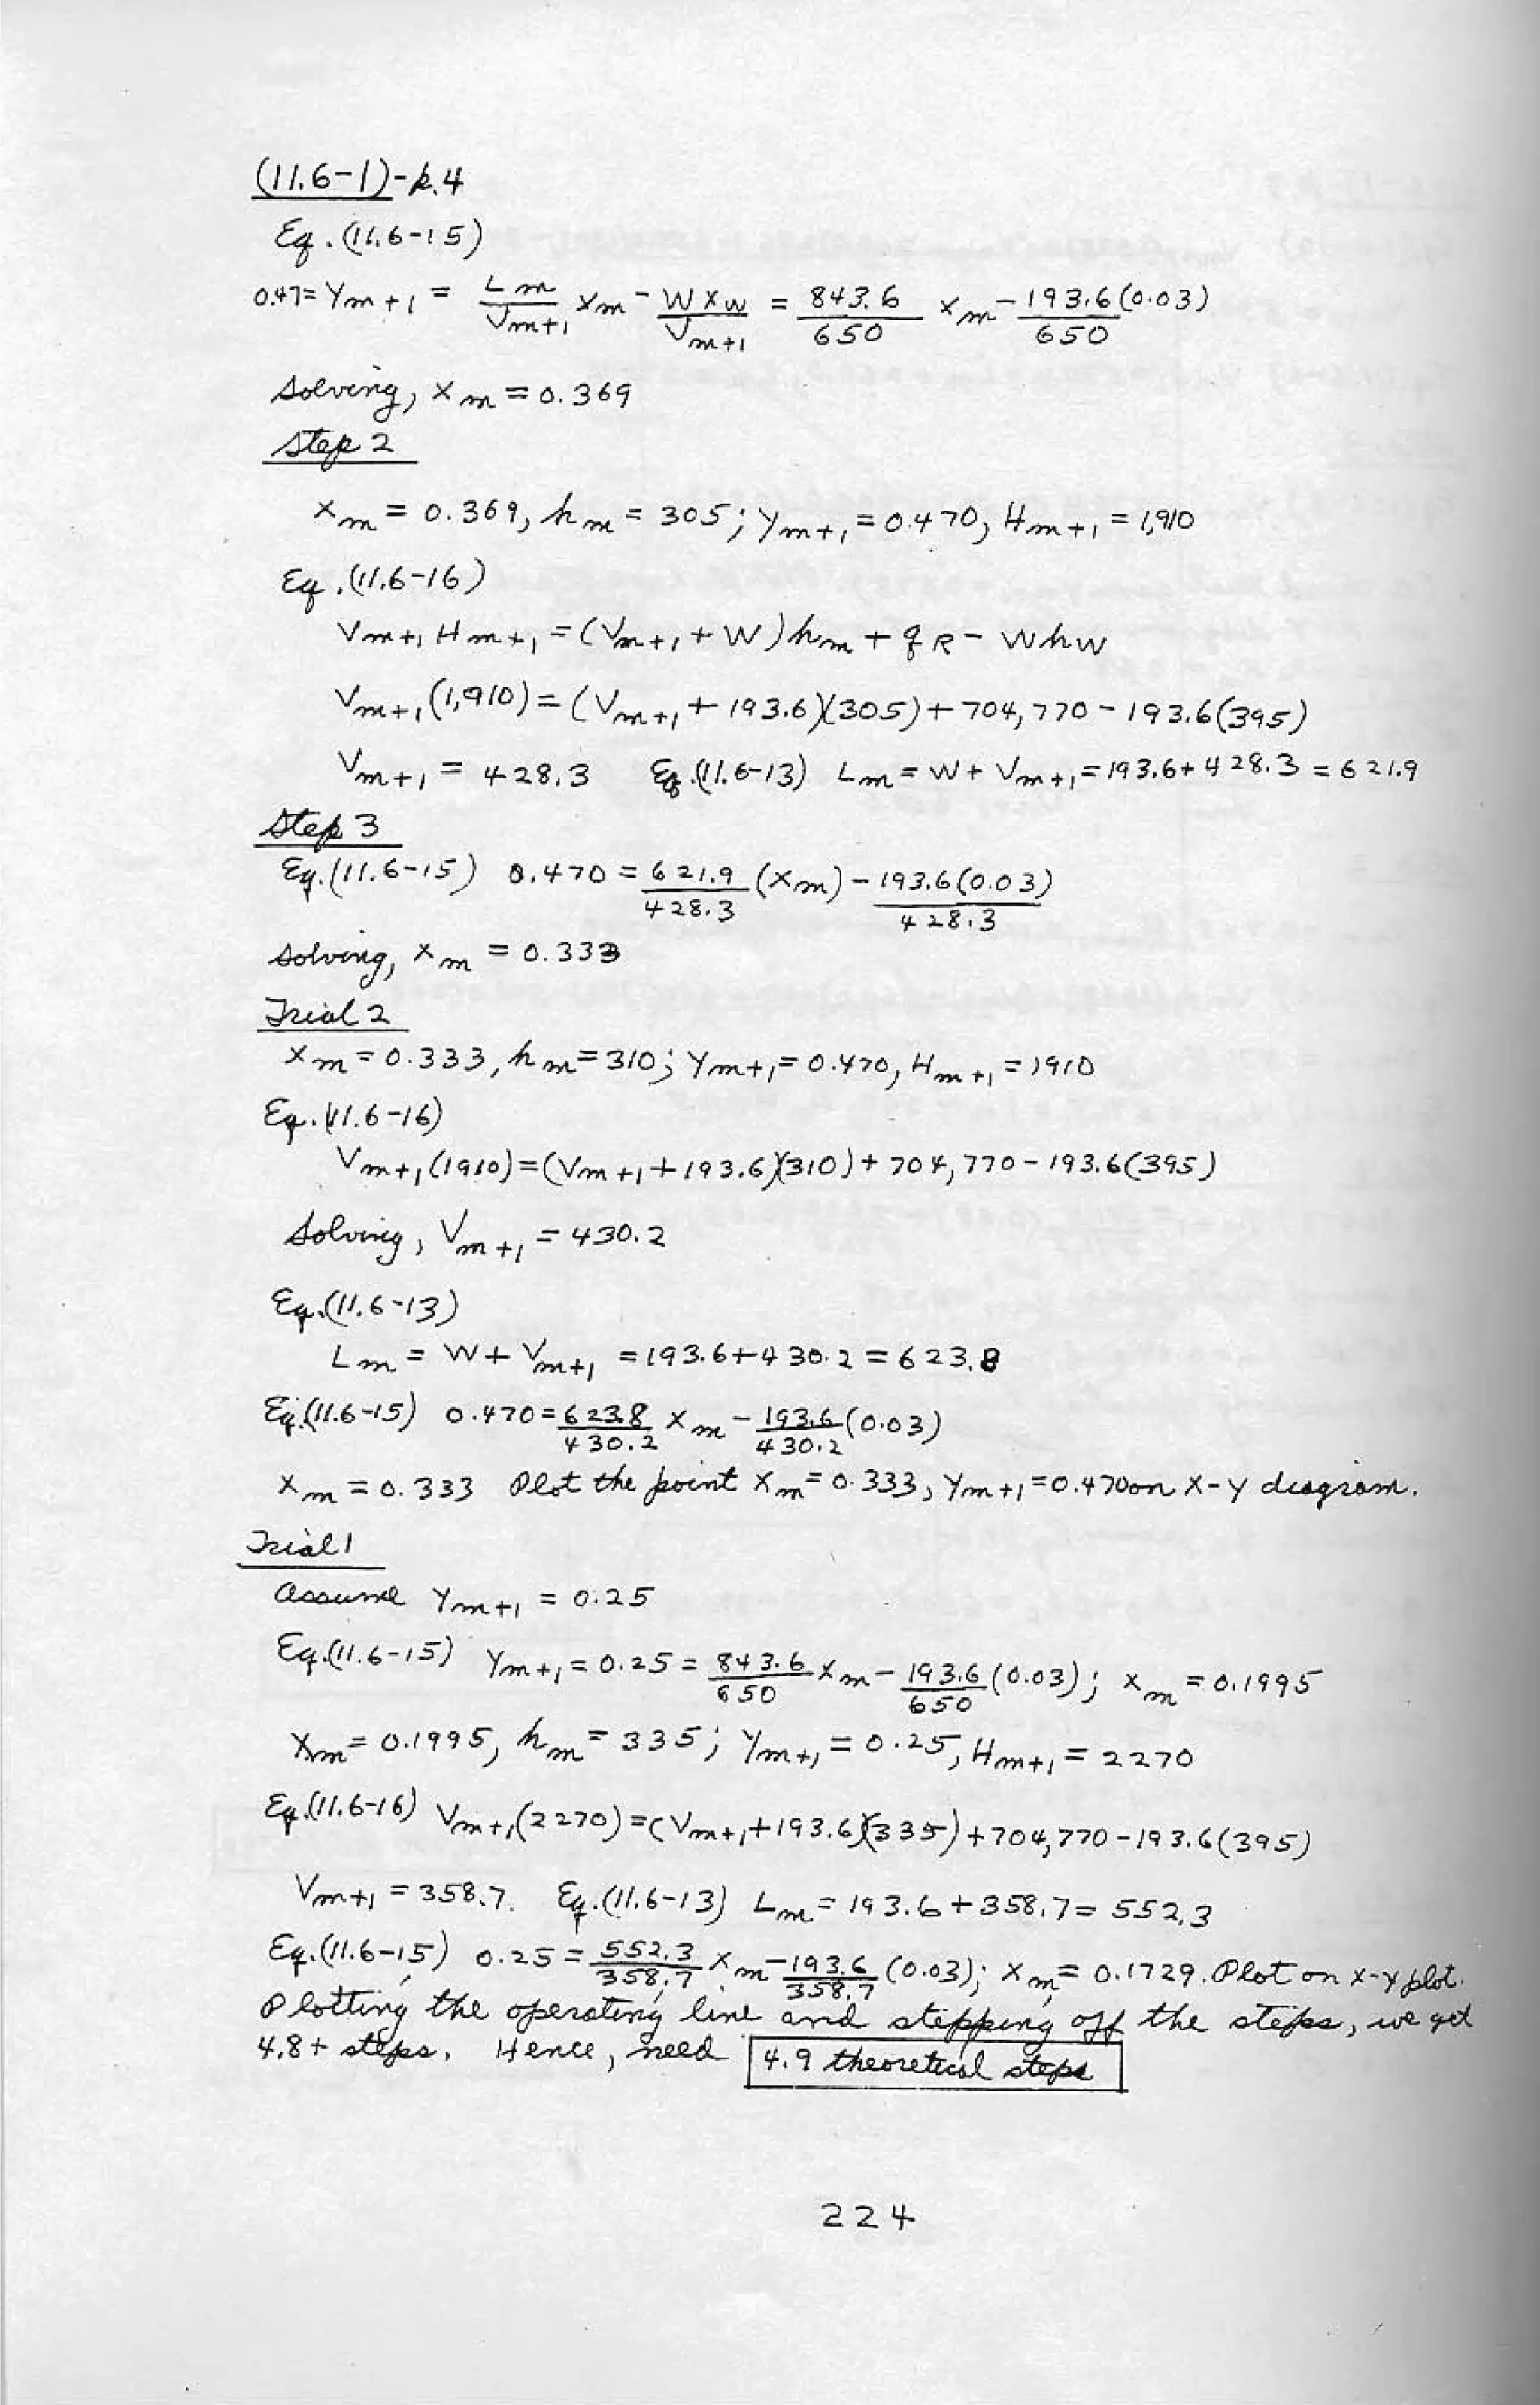 (11.6-1)-p.4
Eq. (11.6-15)
0.47 = y_{m+1} = \frac{L_m}{V_{m+1}} x_m - \frac{W x_W}{V_{m+1}} = \frac{843.6}{650} x_m - \frac{193.6(0.03)}{650}
Solving, x_m = 0.369
Step 2
x_m = 0.369, h_m = 305; y_{m+1} = 0.470, H_{m+1} = 1,910
Eq. (11.6-16)
V_{m+1} H_{m+1} = (V_{m+1} + W) h_m + q_R - W h_W
V_{m+1}(1,910) = (V_{m+1} + 193.6)(305) + 704,770 - 193.6(395)
V_{m+1} = 428.3 Eq. (11.6-13) L_m = W + V_{m+1} = 193.6 + 428.3 = 621.9
Step 3
Eq. (11.6-15) 0.470 = \frac{621.9}{428.3} (x_m) - \frac{193.6(0.03)}{428.3}
Solving, x_m = 0.333
Trial 2
x_m = 0.333, h_m = 310; y_{m+1} = 0.470, H_{m+1} = 1910
Eq. (11.6-16)
V_{m+1}(1910) = (V_{m+1} + 193.6)(310) + 704,770 - 193.6(395)
Solving, V_{m+1} = 430.2
Eq. (11.6-13)
L_m = W + V_{m+1} = 193.6 + 430.2 = 623.8
Eq. (11.6-15) 0.470 = \frac{623.8}{430.2} x_m - \frac{193.6}{430.2} (0.03)
x_m = 0.333 Plot the point x_m = 0.333, y_{m+1} = 0.470 on x-y diagram.
Trial 1
Assume y_{m+1} = 0.25
Eq. (11.6-15) y_{m+1} = 0.25 = \frac{843.6}{650} x_m - \frac{193.6}{650} (0.03); x_m = 0.1995
x_m = 0.1995, h_m = 335; y_{m+1} = 0.25, H_{m+1} = 2270
Eq. (11.6-16) V_{m+1}(2270) = (V_{m+1} + 193.6)(335) + 704,770 - 193.6(395)
V_{m+1} = 358.7. Eq. (11.6-13) L_m = 193.6 + 358.7 = 552.3
Eq. (11.6-15) 0.25 = \frac{552.3}{358.7} x_m - \frac{193.6}{358.7} (0.03); x_m = 0.1729. Plot on x-y plot.
Plotting the operating line and stepping off the steps, we get
4.8+ steps. Hence, need 4.9 theoretical steps
224